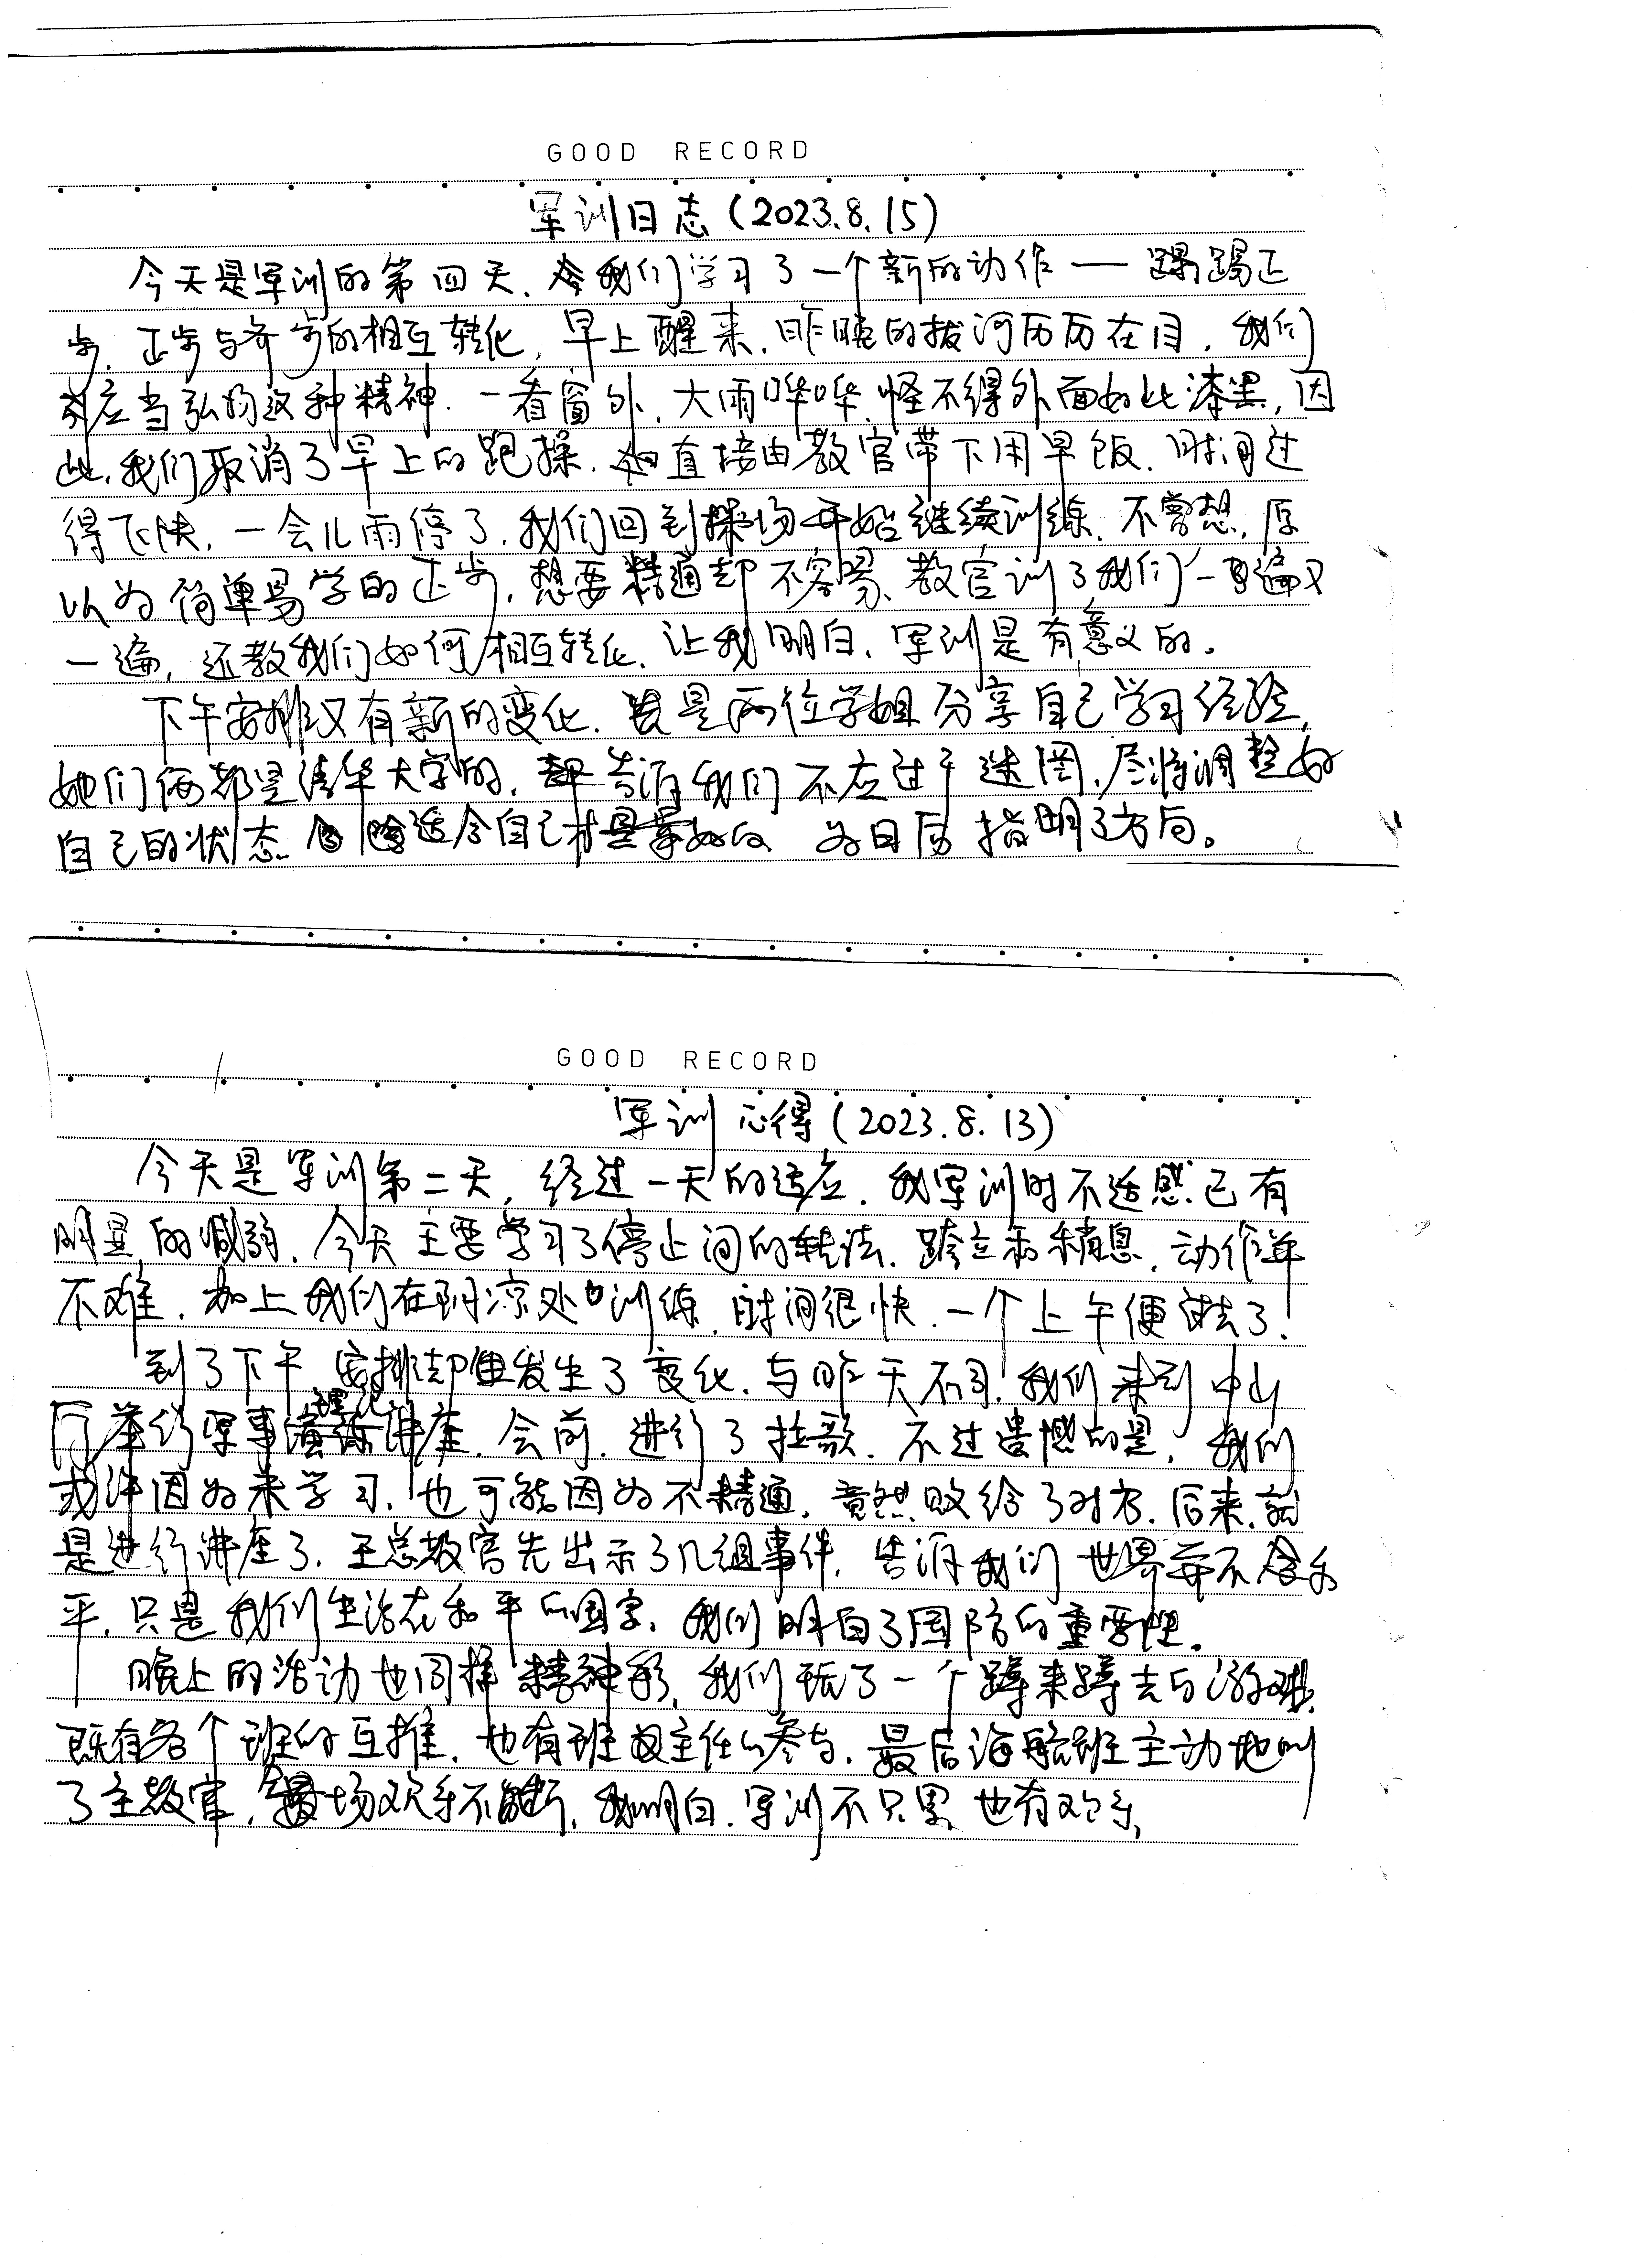 GOOD RECORD
军训日志(2023.8.15)
今天是军训的第四天,我们学习了一个新的动作——踢正
步,正步与齐步的相互转化,早上醒来,昨晚的拔河历历在目,我们
应当弘扬这种精神.一看窗外,大雨哗哗,怪不得外面如此漆黑,因
此,我们取消了早上的跑操,直接由教官带下用早饭.时间过
得飞快,一会儿雨停了,我们回到操场开始继续训练,不曾想,原
以为简单易学的正步,想要精通却不容易,教官训了我们一遍又
一遍,还教我们如何相互转化,让我明白,军训是有意义的。
下午安排又有新的变化,是两位学姐分享自己学习经验,
她们俩都是清华大学的,告诉我们不应过于迷惘,尽快调整好
自己的状态 适合自己才是最好的 为日后指明了方向。
GOOD RECORD
军训心得(2023.8.13)
今天是军训第二天,经过一天的适应,我军训时不适感已有
明显的减弱,今天主要学习了停止间的转法,跨立和稍息,动作并
不难,加上我们在阴凉处训练,时间很快,一个上午便过去了!
到了下午 安排却发生了变化,与昨天不同,我们来到中山
厅举行军事理论讲座,会前,进行了拉歌,不过遗憾的是,我们
或许因为未学习,也可能因为不精通,竟然败给了对方.后来,就
是进行讲座了.王总教官先出示了几组事件,告诉我们世界并不和
平,只是我们生活在和平的国家,我们明白了国防的重要性。
晚上的活动也同样精彩,我们玩了一个蹲来蹲去的游戏,
既有各个班的互推,也有班主任的参与,最后海航班主动地叫
了主教官,全场欢乐不断,我明白,军训不只累,也有欢乐,